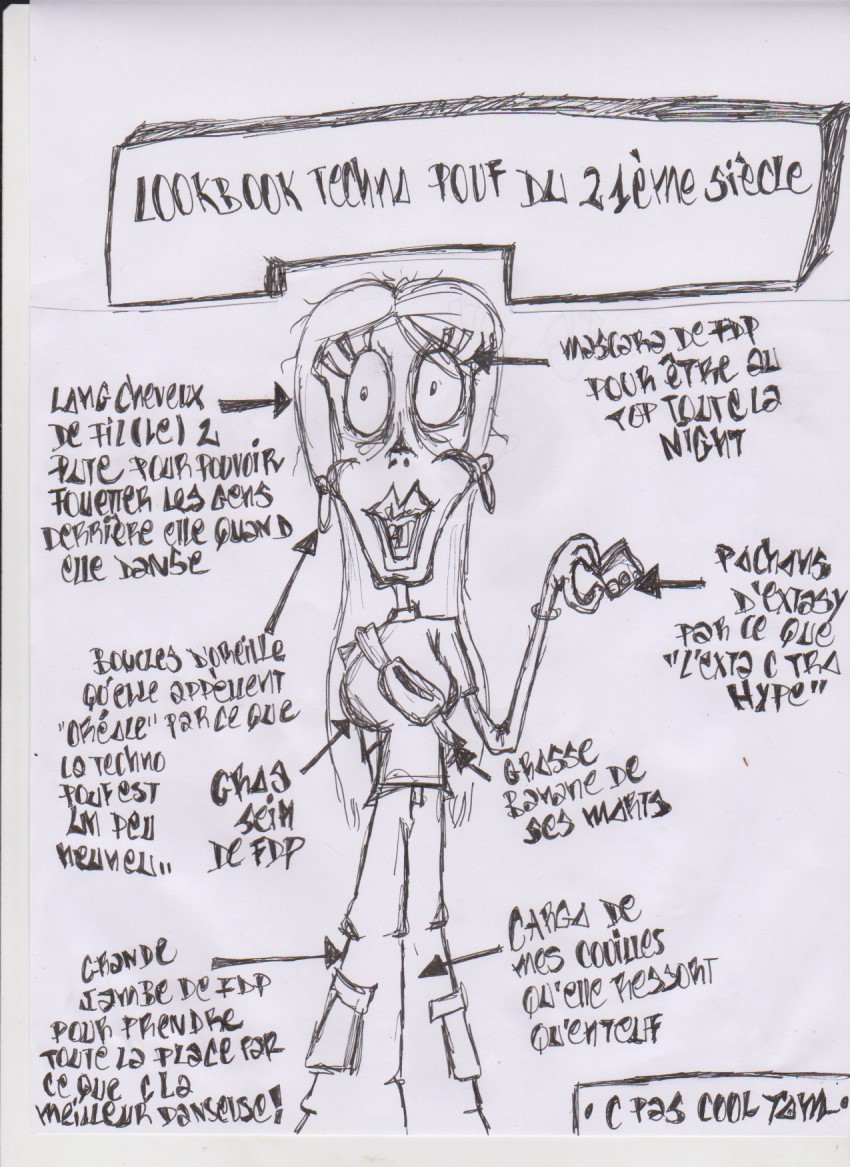 LOOKBOOK TECHNO POUF DU 21ème SIÈCLE
MASCARA DE FDP
POUR ÊTRE AU
TOP TOUTE LA
NIGHT
LONG CHEVEUX
DE FIL(LE) 2
PUTE POUR POUVOIR
FOUETTER LES GENS
DERRIÈRE ELLE QUAND
ELLE DANSE
POCHONS
D'EXTASY
PAR CE QUE
"L'EXTA C TRO
HYPE"
BOUCLES D'OREILLE
QU'ELLE APPELLENT
"ORÉOLE" PAR CE QUE
LA TECHNO
POUF EST
UN PEU
NEUNEU..
GROS
SEIN
DE FDP
GROSSE
BANANE DE
SES MORTS
GRANDE
JAMBE DE FDP
POUR PRENDRE
TOUTE LA PLACE PAR
CE QUE C LA
MEILLEUR DANSEUSE!
CARGO DE
MES COUILLES
QU'ELLE RESSORT
QU'EN TEUF
• C PAS COOL TOM •